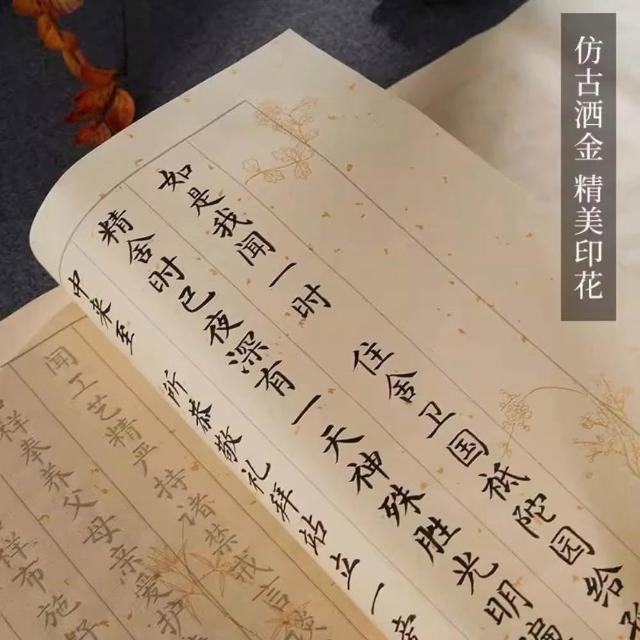 仿古洒金 精美印花
如是我闻一时 住舍卫国祇陀园给
精舍时已夜深有一天神殊胜光明遍
中来至 所恭敬礼拜站立一旁
闻工艺精严持诸禁戒言谈
样奉养父母亲爱护
样布施好